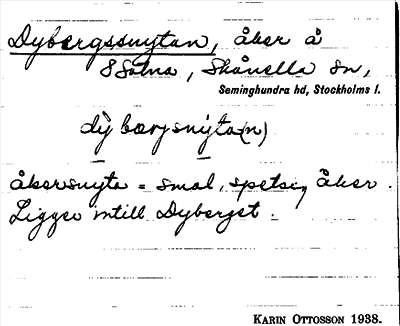 Dybergssnytan, åker å
Solna, Skånella sn,
Seminghundra hd, Stockholms l.
dỳbærjsnýta(n)
åkersnyta = smal, spetsig åker.
Ligger intill Dyberget.
KARIN OTTOSSON 1938.